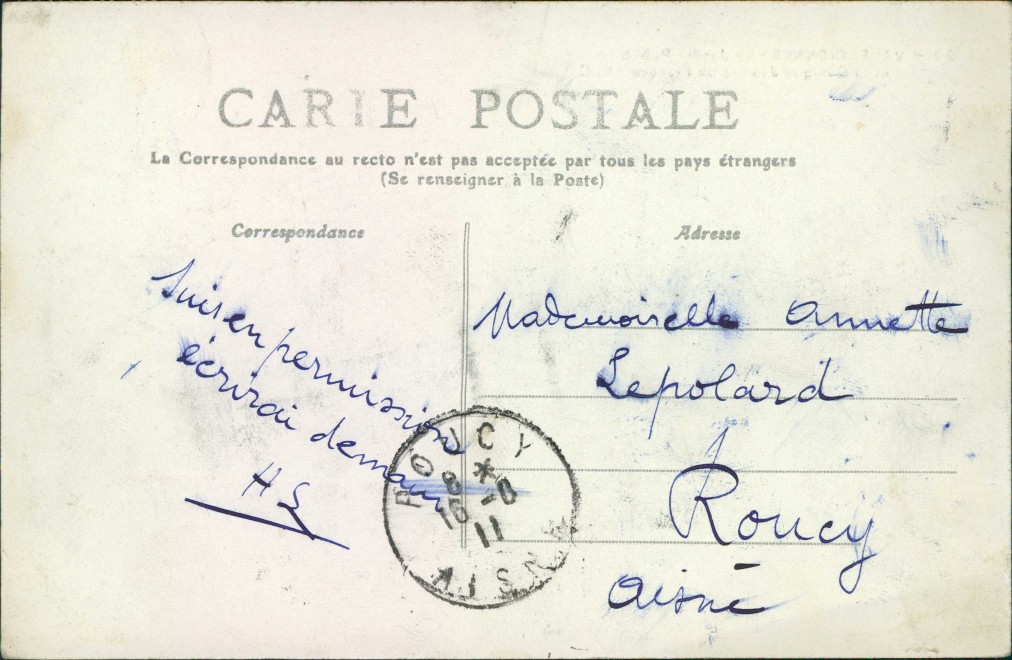 CARTE POSTALE
La Correspondance au recto n'est pas acceptée par tous les pays étrangers
(Se renseigner à la Poste)
Correspondance
Suis en permission
écrirai demain
H S
Adresse
Mademoiselle Annette
Lepolard
Roucy
Aisne
ROUCY
*
16 -8
11
AISNE